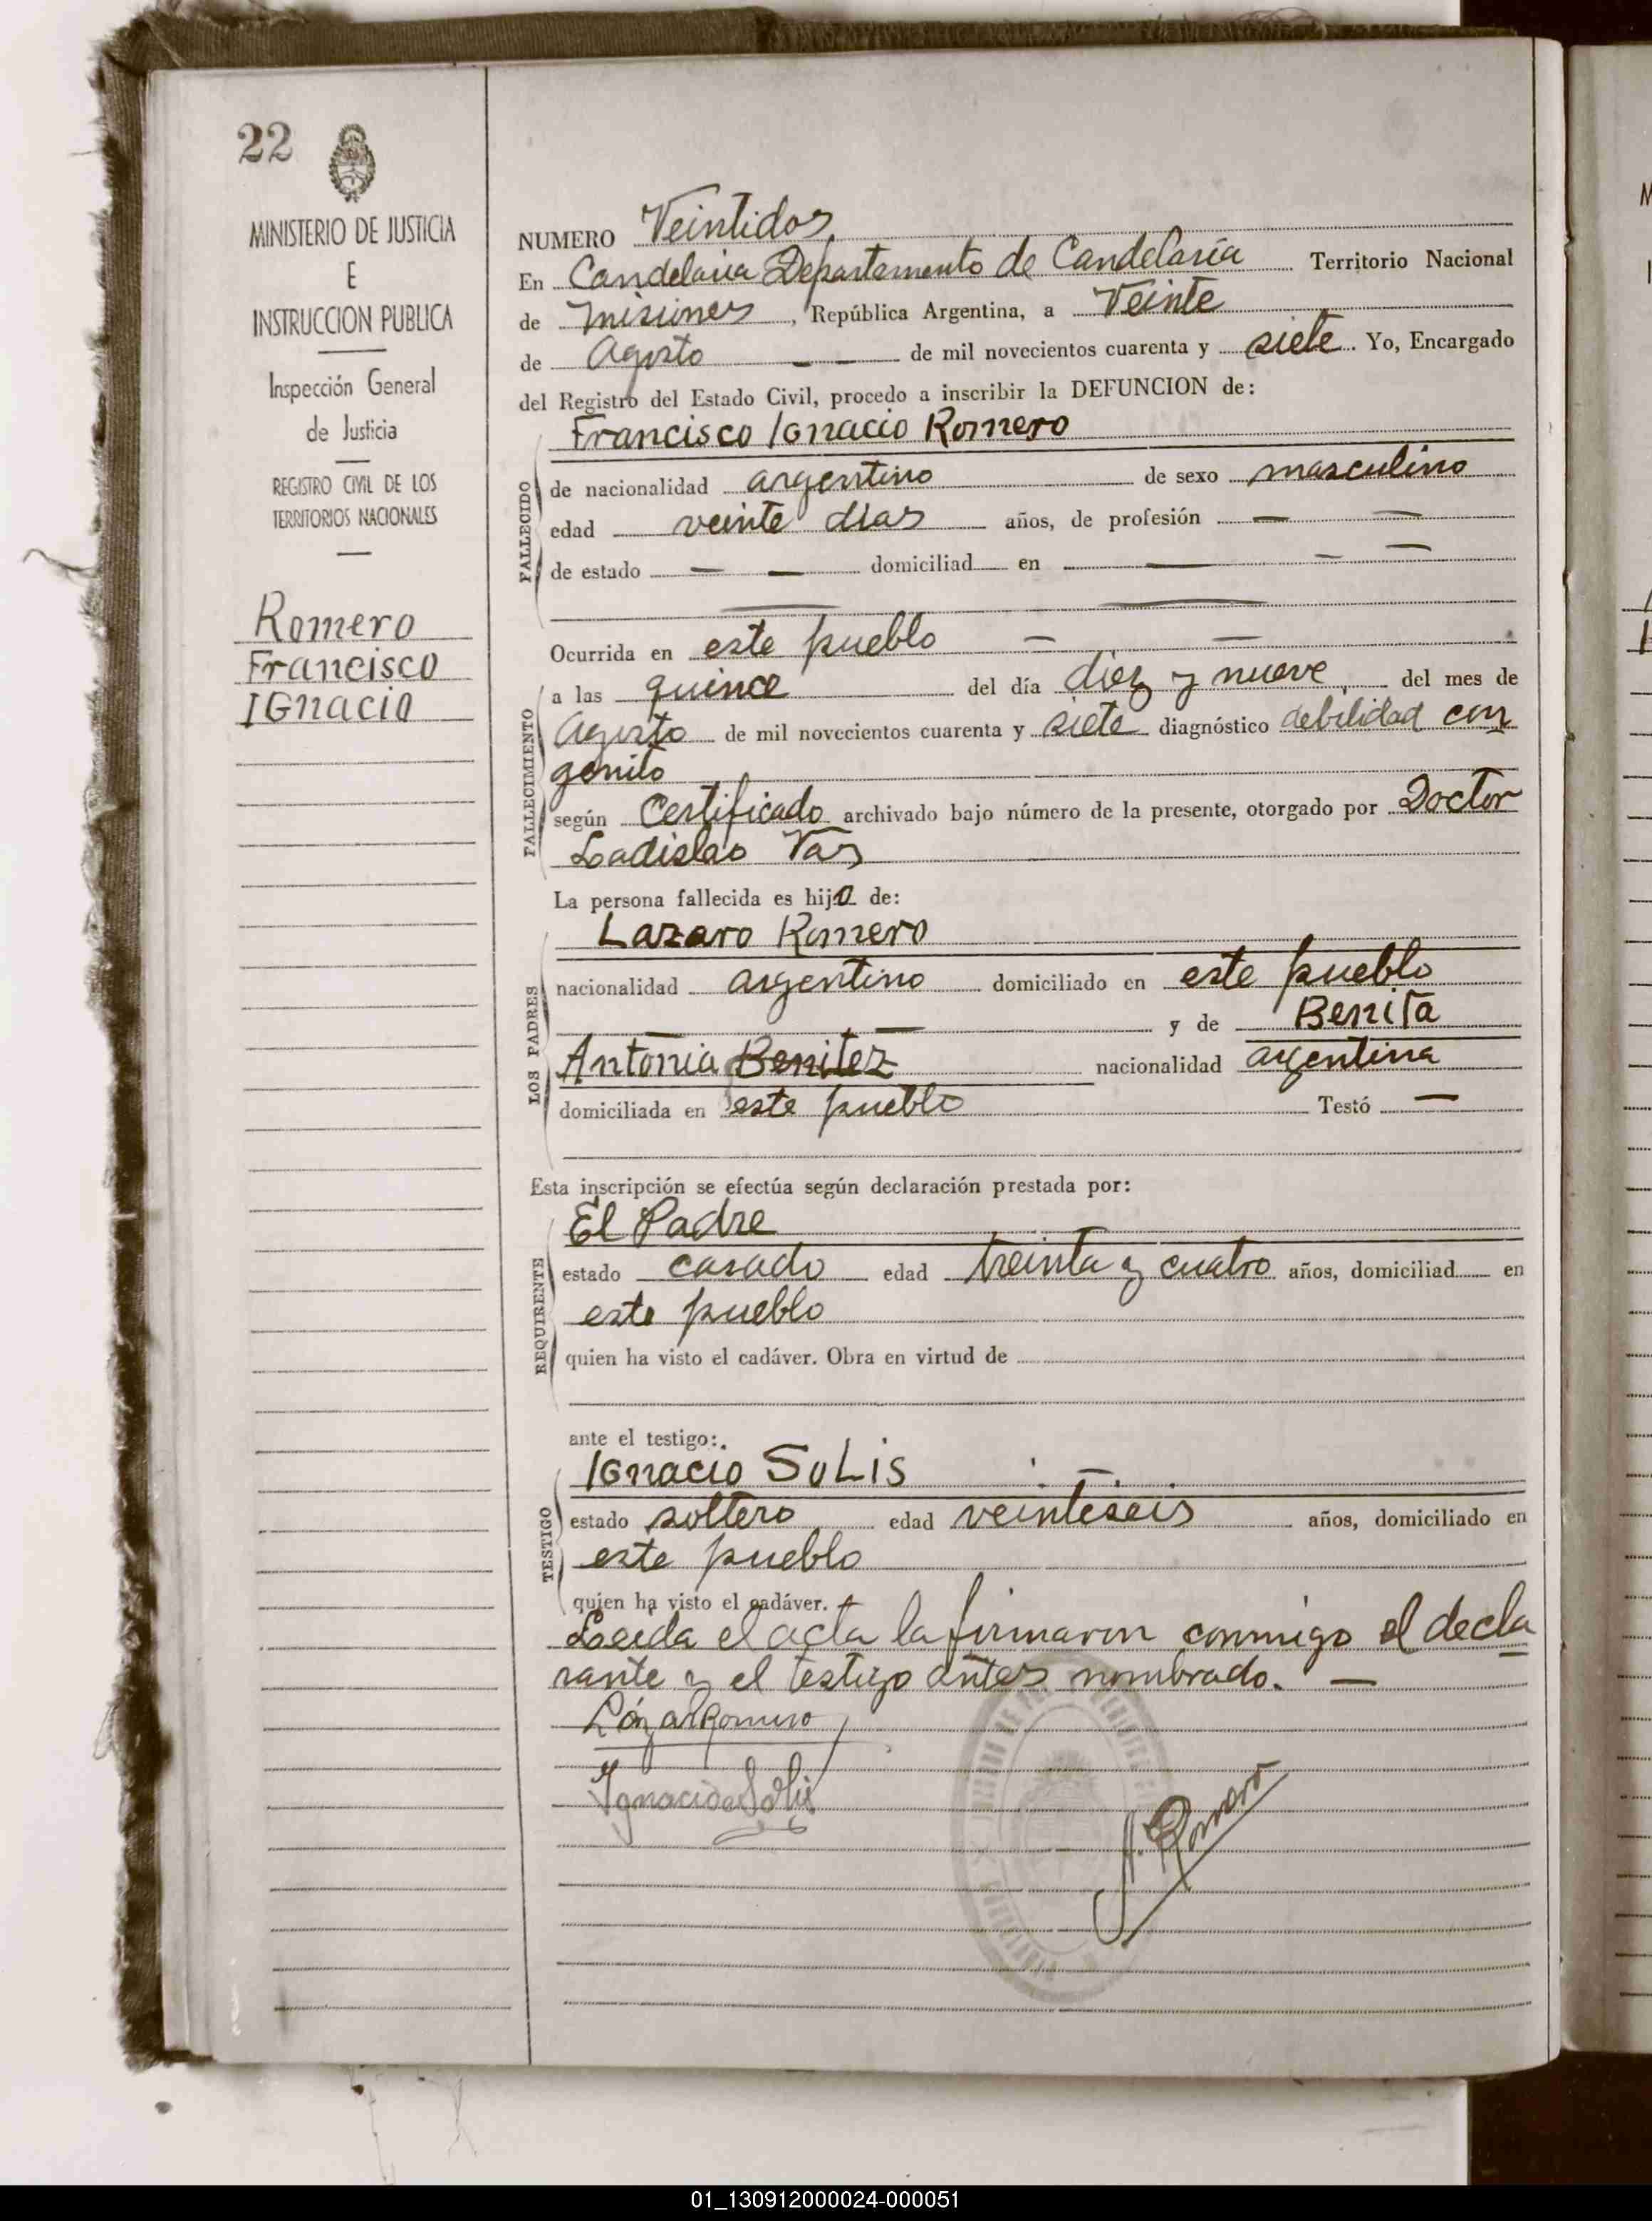 22
MINISTERIO DE JUSTICIA
E
INSTRUCCION PUBLICA
Inspección General
de Justicia
REGISTRO CIVIL DE LOS
TERRITORIOS NACIONALES
Romero
Francisco
IGnacio
NUMERO Veintidos
En Candelaria Departamento de Candelaria Territorio Nacional
de Misiones, República Argentina, a Veinte
de Agosto — — de mil novecientos cuarenta y siete. Yo, Encargado
del Registro del Estado Civil, procedo a inscribir la DEFUNCION de:
Francisco IGnacio Romero
FALLECIDO
de nacionalidad argentino de sexo masculino
edad veinte dias años, de profesión — —
de estado — — domiciliad en — — —
Ocurrida en este pueblo — —
FALLECIMIENTO
a las quince del día diez y nueve, del mes de
Agosto de mil novecientos cuarenta y siete diagnóstico debilidad con
genito
según Certificado archivado bajo número de la presente, otorgado por Doctor
Ladislao
La persona fallecida es hijo de:
LOS PADRES
Lazaro Romero
nacionalidad argentino domiciliado en este pueblo
— y de Benita
Antonia Benitez nacionalidad argentina
domiciliada en este pueblo Testó —
Esta inscripción se efectúa según declaración prestada por:
REQUIRENTE
El Padre
estado casado edad treinta y cuatro años, domiciliad en
este pueblo
quien ha visto el cadáver. Obra en virtud de
ante el testigo:
TESTIGO
IGnacio SoLis —
estado soltero edad veinteseis años, domiciliado en
este pueblo
quien ha visto el cadáver. —
Leida el acta la firmaron conmigo el decla
rante y el testigo antes nombrado. —
Lázaro Romero
Ignacio Solis
Romero
01_130912000024-000051